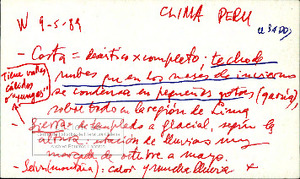 CLIMA PERU
W 9-5-39
- Costa = desértica x completo; techo de
nubes que en los meses de invierno
se condensa en pequeñas gotas (garúa),
sobre todo a la región de Lima
Tiene valles
cálidos
o "yungas"
Sierra: de templado a glacial, según la
altura; estación de lluvias muy
marcada de octubre a marzo.
- Selva (montaña): calor y mucha lluvia x